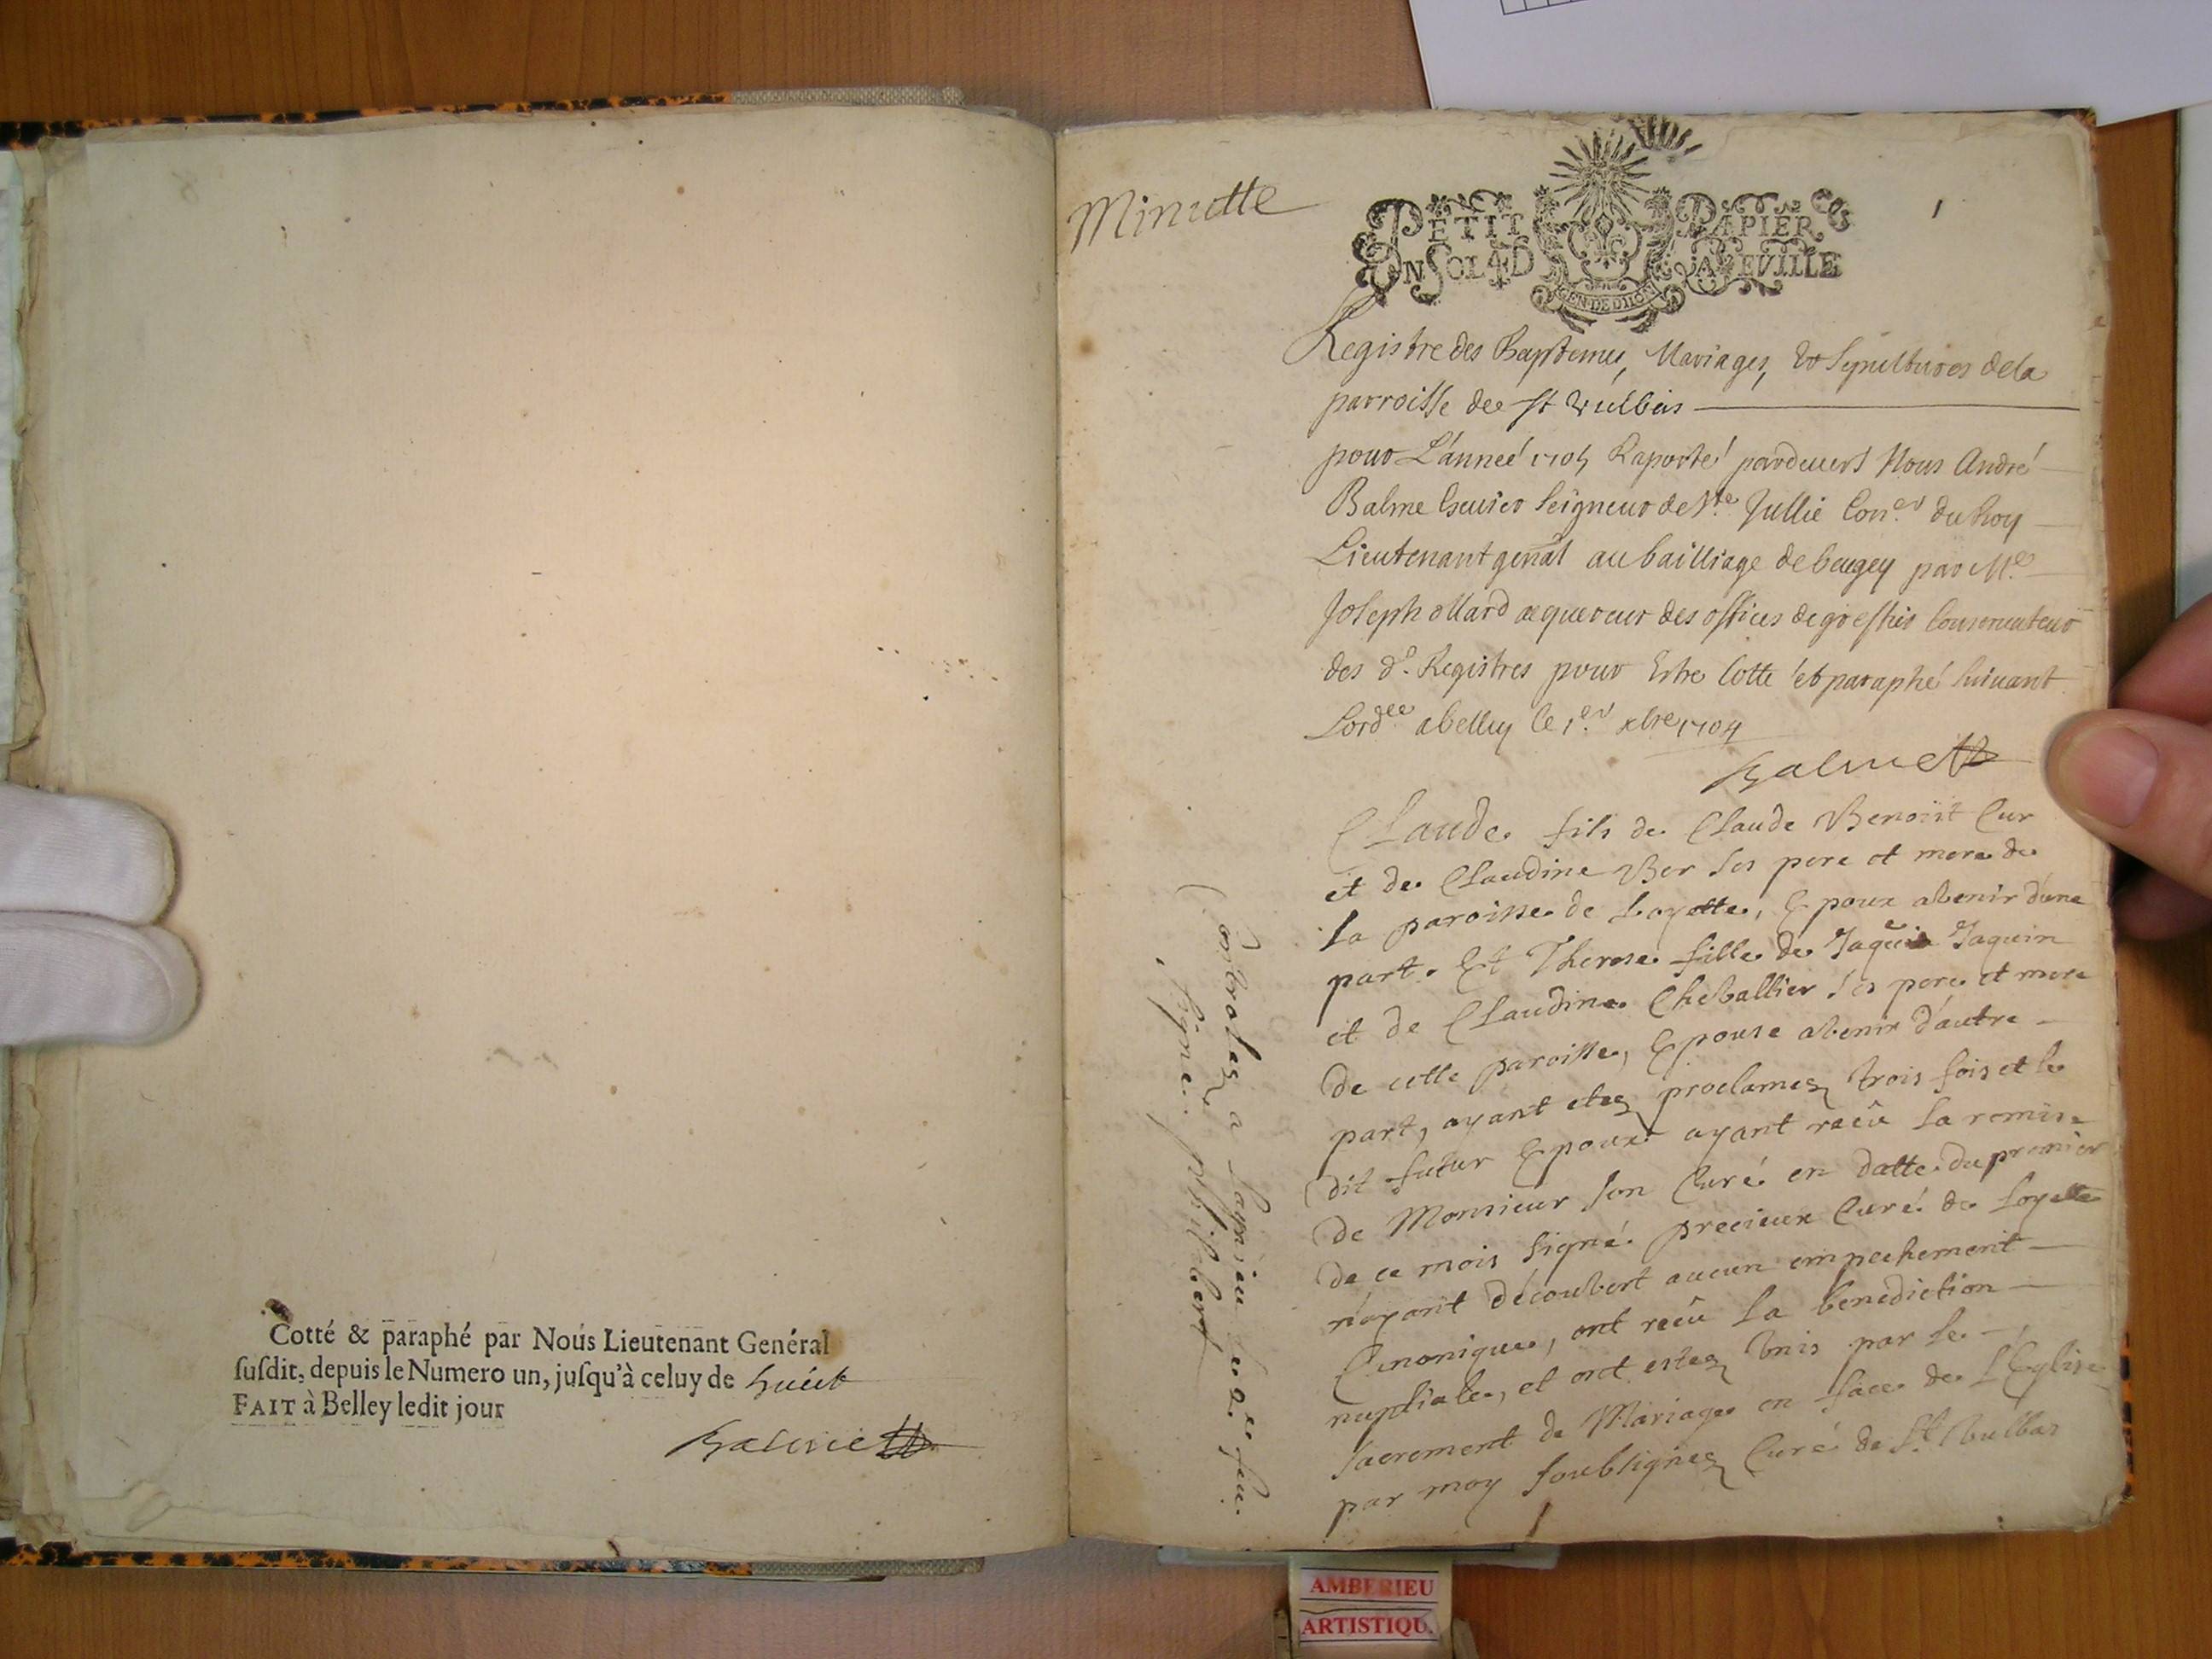 Cotté & paraphé par Nous Lieutenant Genéral
suſdit, depuis le Numero un, juſqu'à celuy de huict
FAIT à Belley ledit jour
Balme
Minutte
1
PETIT PAPIER
UN SOL 4 D LA FEVILLE
GEN DE DIION
Registre des Baptemes, Mariages, Et Sepultures dela
parroisse dee St Vulbas
pour L'année 1705 Raporté pardeuers Nous André
Balme Escuier Seigneur de Ste Jullie Con.er du Roy
Lieutenant genãl au bailliage de beugey par Me
Joseph ollard acquereur des offices de greffier Conseruateur
des d. Registres pour Estre Cotté et paraphé suiuant
Lord.ce a belley le 1.er xbre 1704
Balme
Claude fils de Claude Benoiît Cur
et de Claudine Ber ses pere et mere de
la paroisse de Loyette, Epoux avenir d'une
part. Et Therese fille de Jaque Jaquin
et de Claudine Chevallier ses pere et mere
de cette paroisse, Epouse avenir d'autre
part, ayant etez proclamez trois fois et le
dit futur Epoux ayant receû la remise
de Monsieur son Curé en datte du premier
de ce mois signé precieux Curé de Loyette
n'ayant découvert aucun empechement
Canonique, ont receû la benediction
nuptiale, et ont estez Unis par le
sacrement de Mariage en face de L'Eglise
par moy soubsignez Curé de St Vulbas
Controlez a Lagnieu le 2.e feu.
signe philibert
AMBERIEU
ARTISTIQU